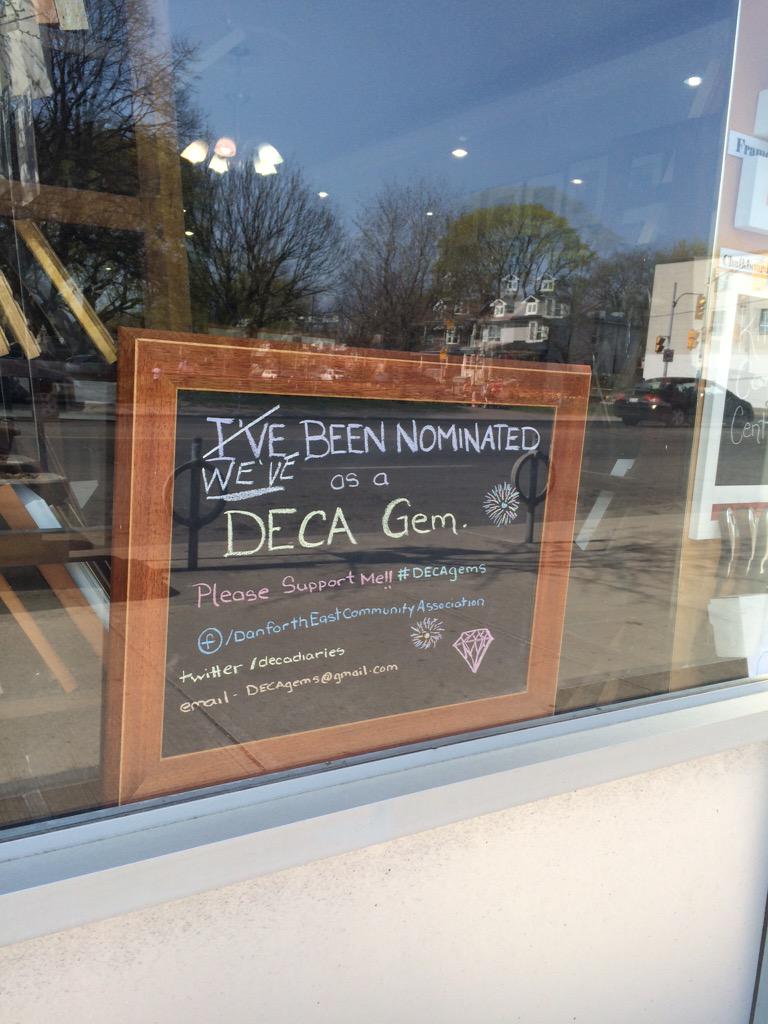 I'VE BEEN NOMINATED
WE'VE
as a
DECA Gem.
Please Support Me!! #DECAgems
f /DanforthEastCommunityAssociation
twitter /decadiaries
email - DECAgems@gmail.com